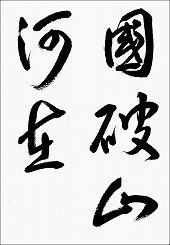 國破山
河在